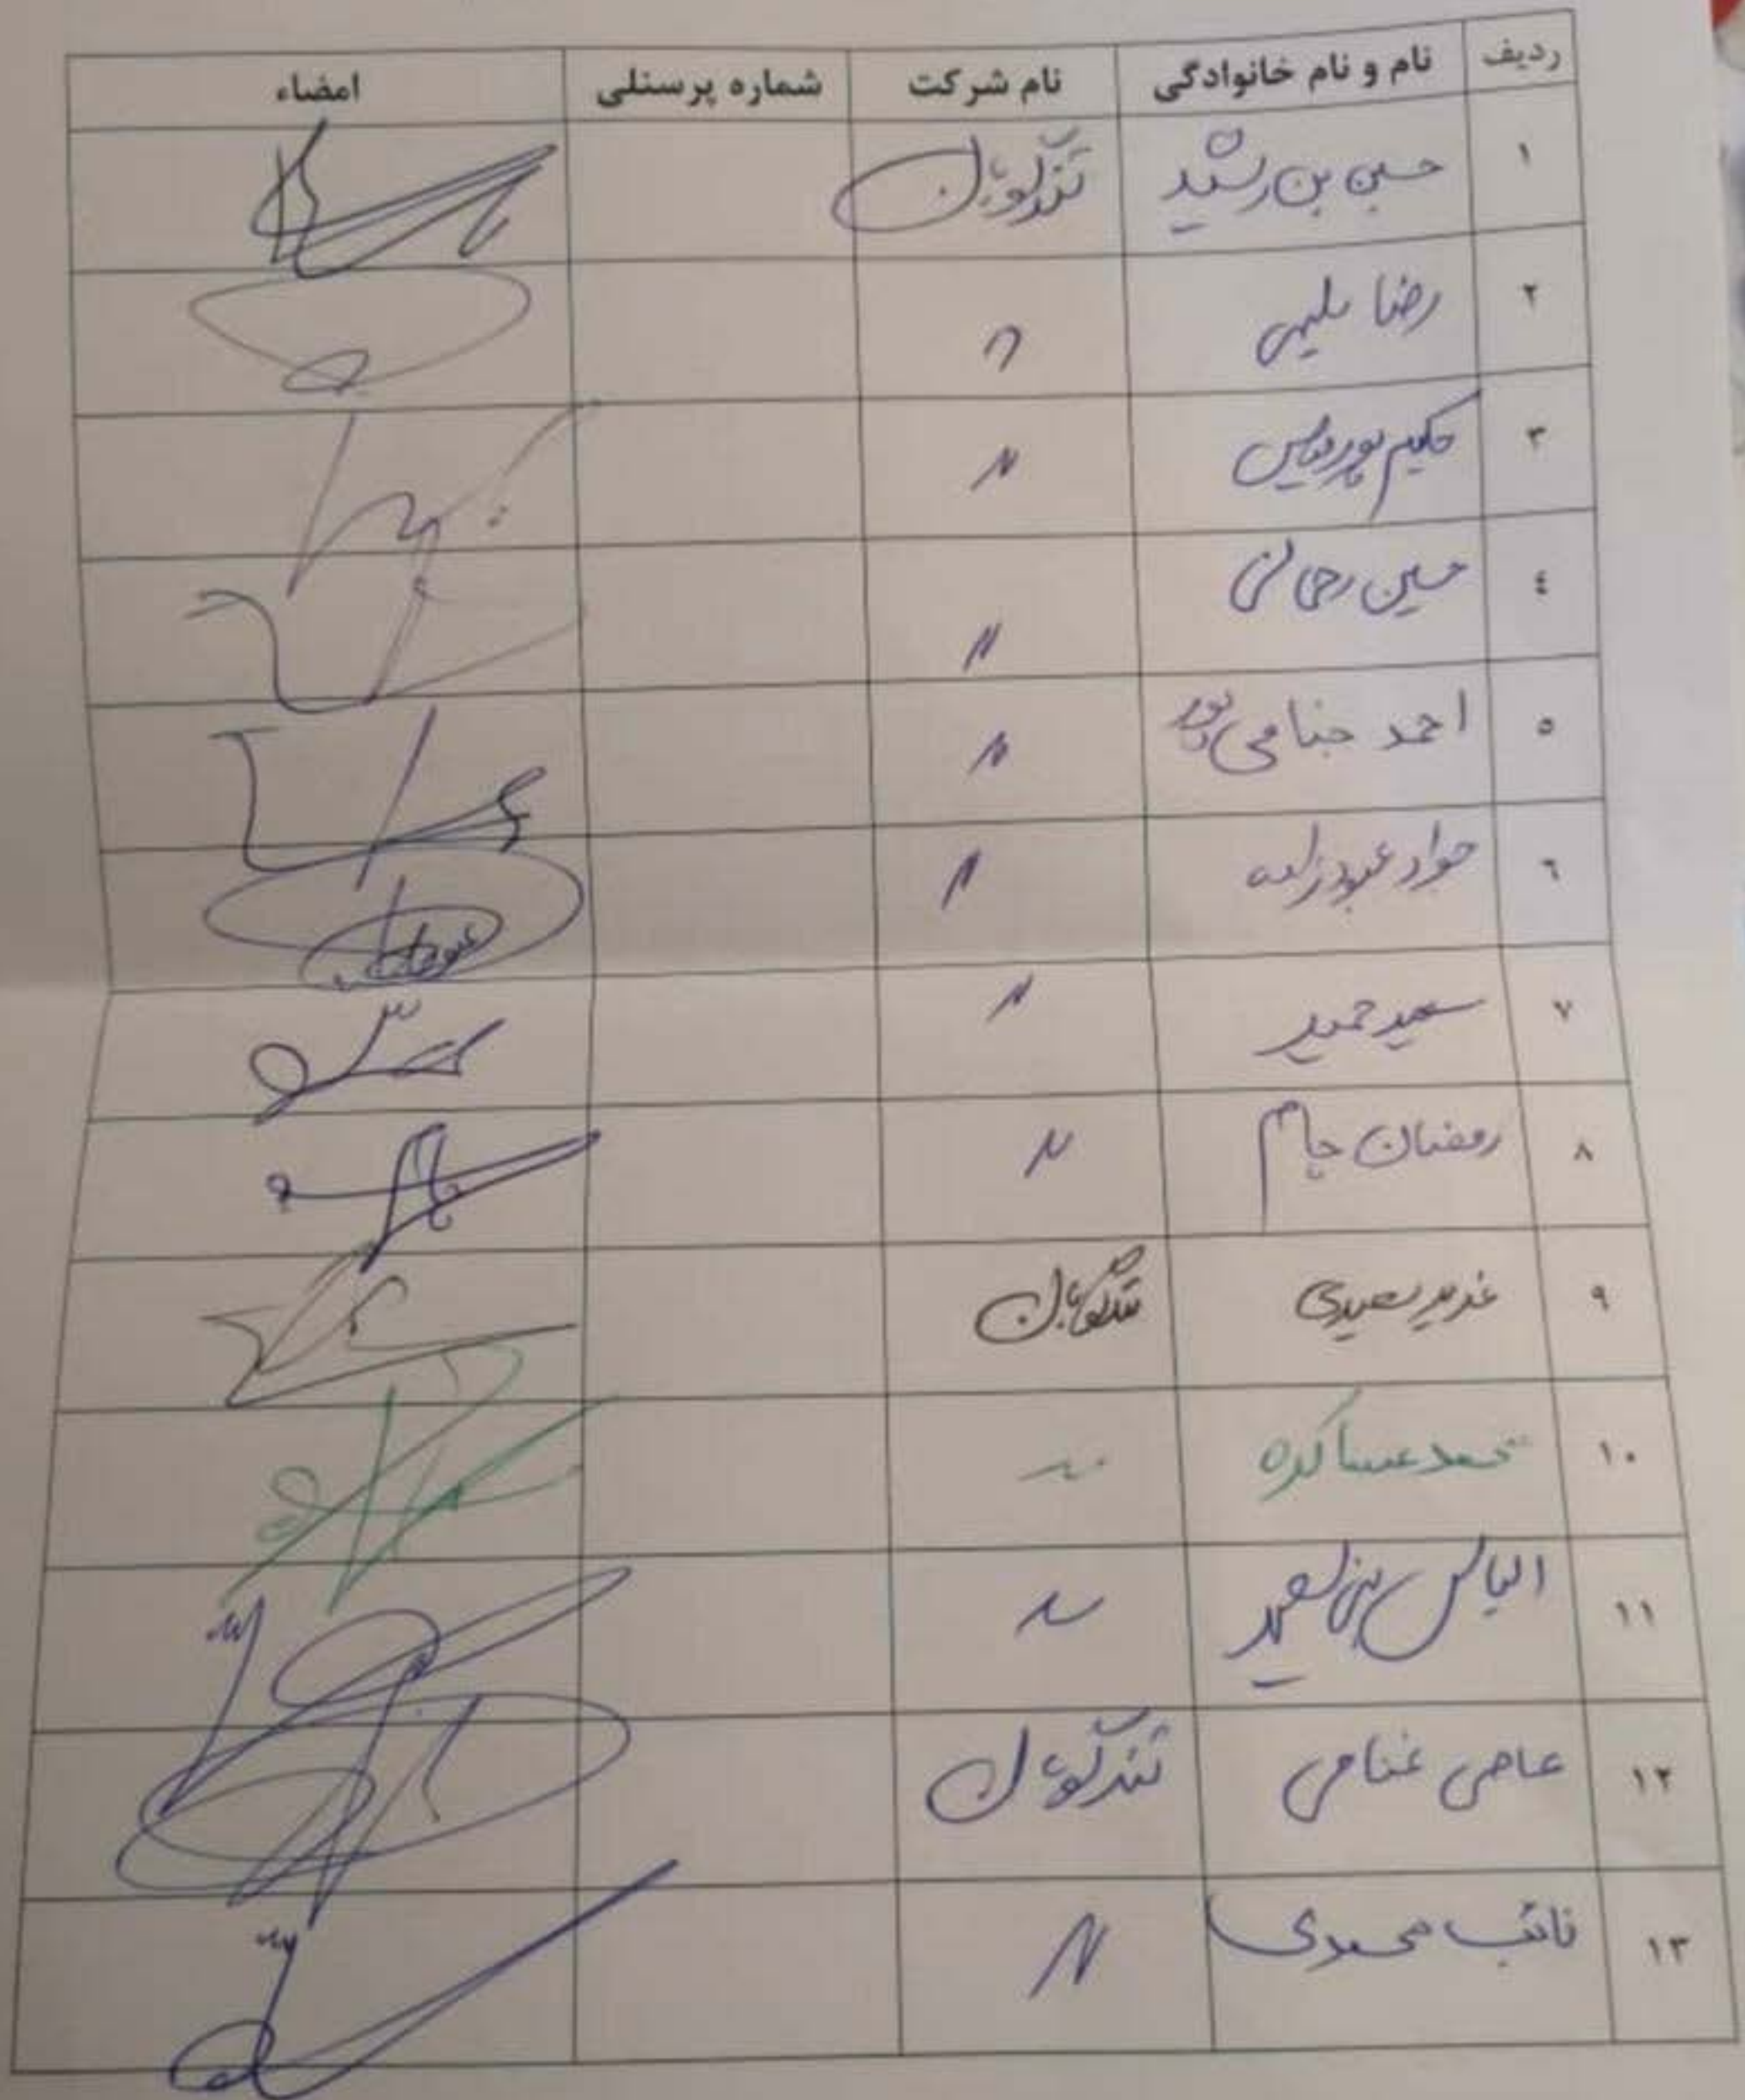 ردیف نام و نام خانوادگی نام شرکت شماره پرسنلی امضاء
۱ حسین بن رشید تندگویان
۲ رضا
۳ حکیم "
۴ حسین رحمانی "
۵ احمد جنامی پور "
۶ جواد عبودزاده "
۷ سعید حمید "
۸ رمضان جام "
۹ غدیر سعیدی تندگویان
۱۰ محمد عساکره "
۱۱ الیاس بنی سعید "
۱۲ عاصی غنامی تندگویان
۱۳ نائب محمودی "